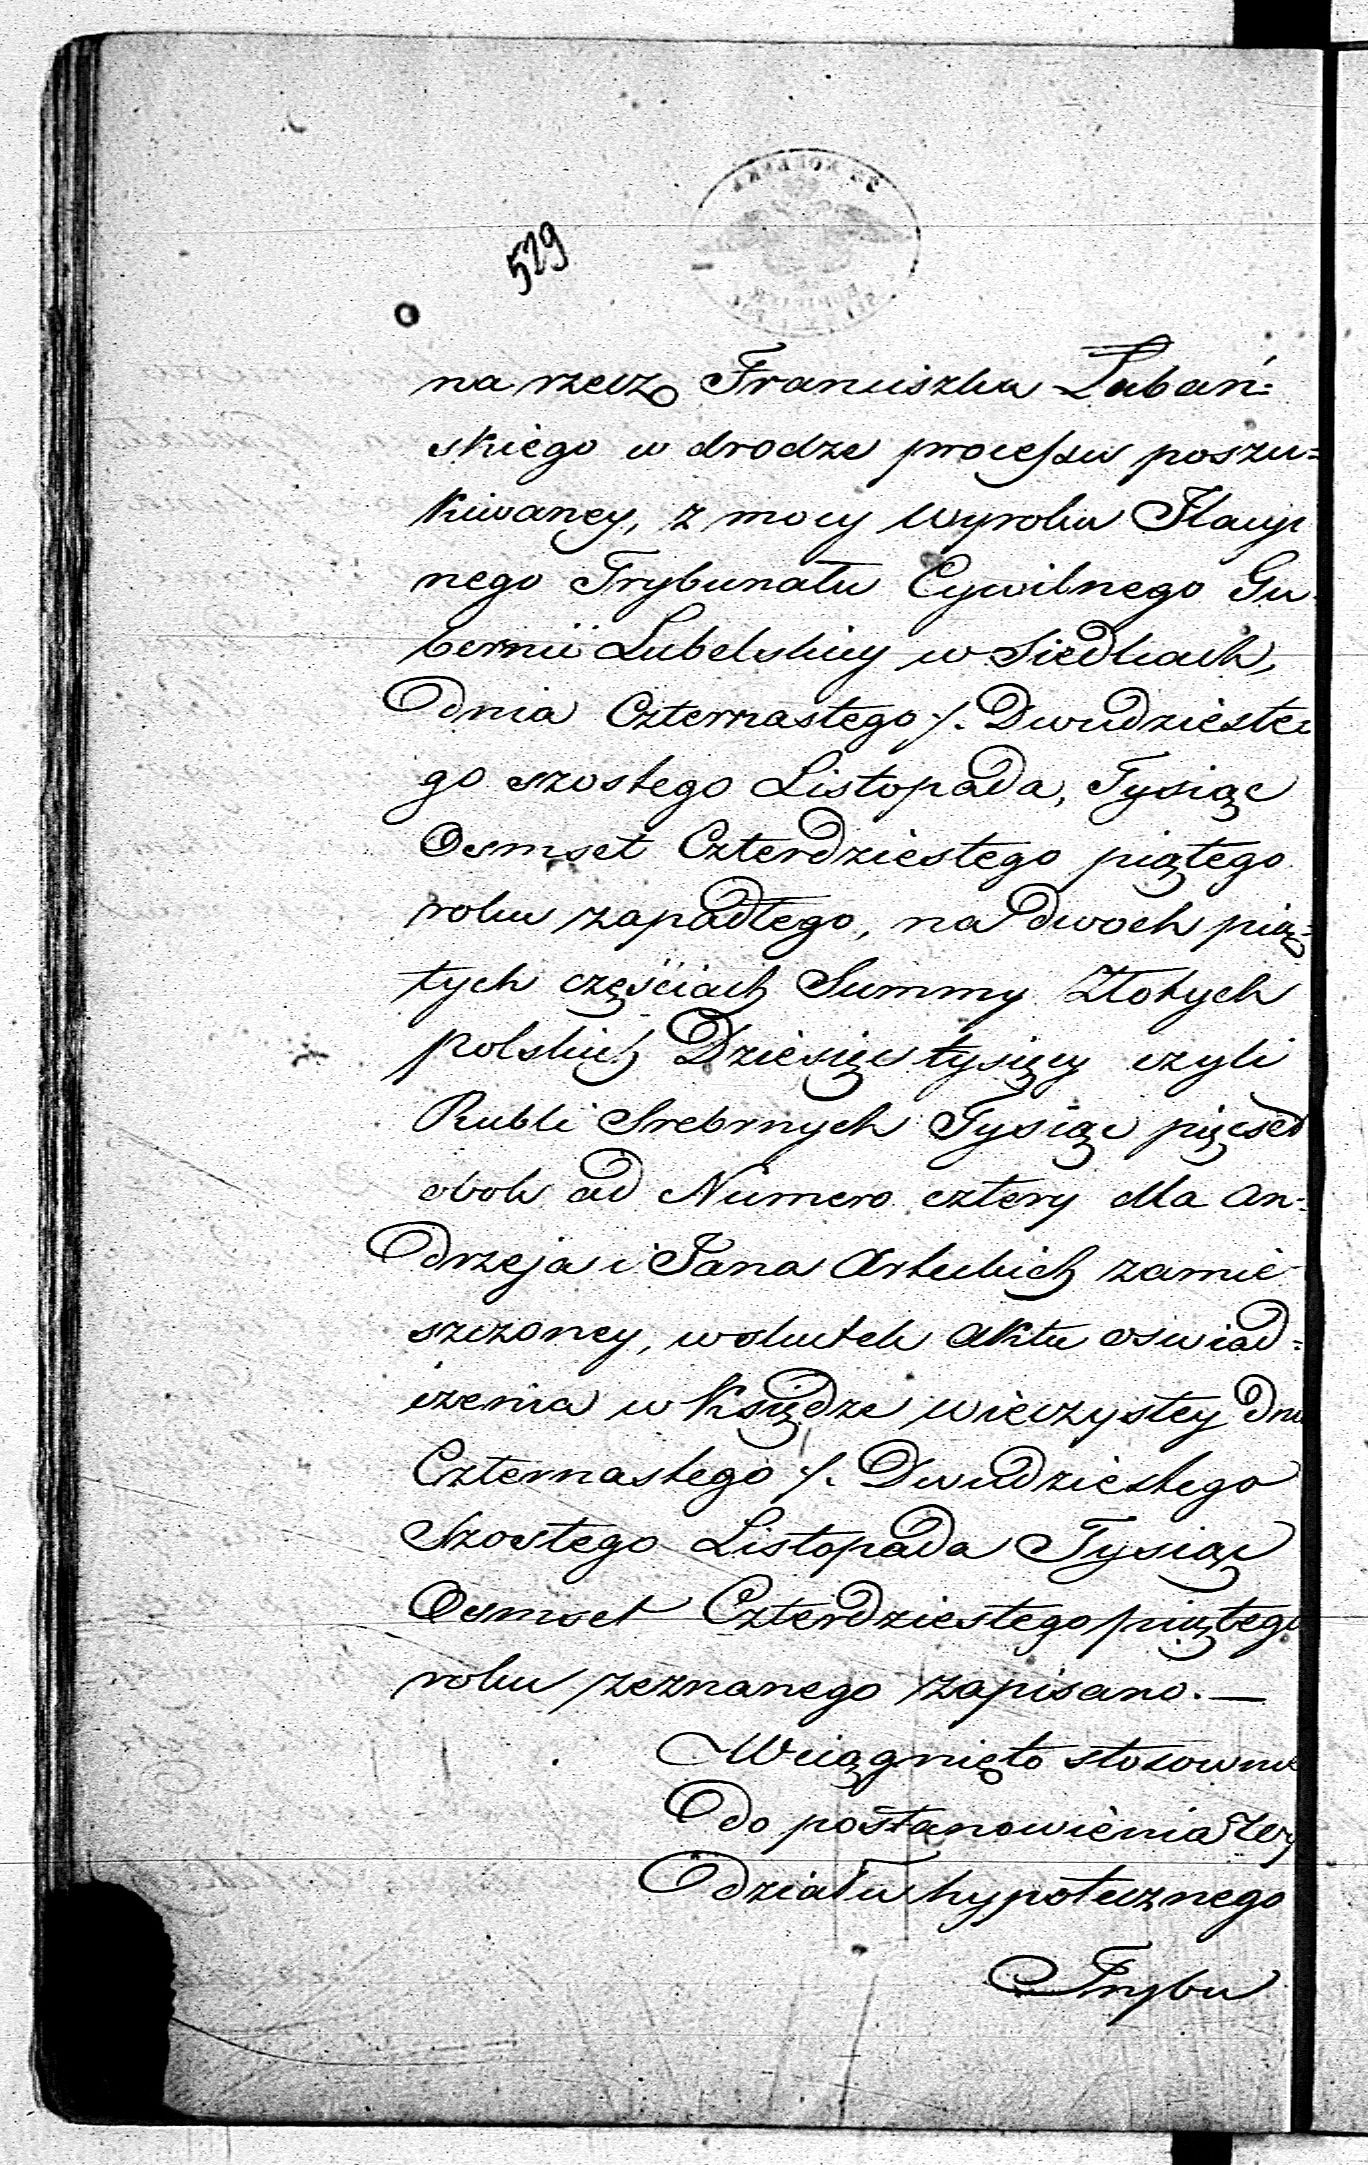 529
na rzecz Franciszka Łubań=
skiego w drodze processu poszu=
kiwaney, z mocy Wyroku
nego Trybunału Cywilnego Gu=
bernii Lubelskiey w Siedlcach,
dnia Czternastego /. Dwudzieste
go szostego Listopada, Tysiąc
Osmset Czterdziestego piątego
roku zapadłego, na dwoch pią=
tych częściach Summy Złotych
polskich Dziesięć tysięcy czyli
Rubli Srebrnych Tysiąc pięcset
obok ad Numero cztery dla An=
drzeja i Jana zamie
szczoney, wskutek Aktu oswiad=
czenia w Księdze wieczystey dnia
Czternastego /. Dwudziestego
Szostego Listopada Tysiąc
Osmset Czterdziestego piątego
roku zeznanego zapisano. —
Wciągnięto stosownie
do postanowienia Wy
działu hypotecznego
Trybu